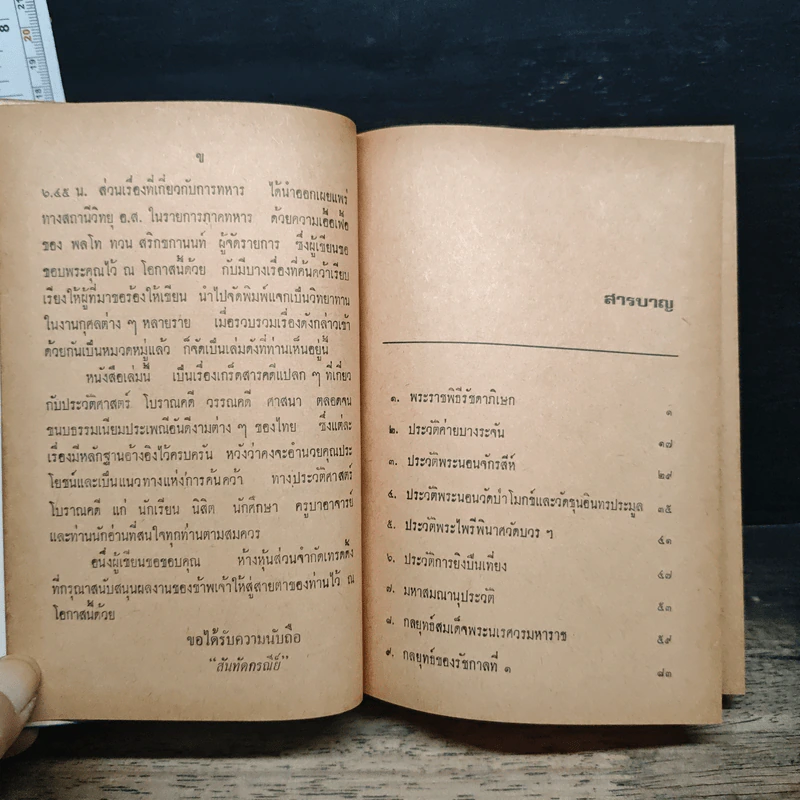 8
20
19
18
ข
๖.๔๕ น. ส่วนเรื่องที่เกี่ยวกับการทหาร ได้นำออกเผยแพร่
ทางสถานีวิทยุ อ.ส. ในรายการภาคทหาร ด้วยความเอื้อเฟื้อ
ของ พลโท ทวน สริกขกานนท์ ผู้จัดรายการ ซึ่งผู้เขียนขอ
ขอบพระคุณไว้ ณ โอกาสนี้ด้วย กับมีบางเรื่องที่ค้นคว้าเรียบ
เรียงให้ผู้ที่มาขอร้องให้เขียน นำไปจัดพิมพ์แจกเป็นวิทยาทาน
ในงานกุศลต่าง ๆ หลายราย เมื่อรวบรวมเรื่องดังกล่าวเข้า
ด้วยกันเป็นหมวดหมู่แล้ว ก็จัดเป็นเล่มดังที่ท่านเห็นอยู่นี้
หนังสือเล่มนี้ เป็นเรื่องเกร็ดสารคดีแปลก ๆ ที่เกี่ยว
กับประวัติศาสตร์ โบราณคดี วรรณคดี ศาสนา ตลอดจน
ขนบธรรมเนียมประเพณีอันดีงามต่าง ๆ ของไทย ซึ่งแต่ละ
เรื่องมีหลักฐานอ้างอิงไว้ครบครัน หวังว่าคงจะอำนวยคุณประ
โยชน์และเป็นแนวทางแห่งการค้นคว้า ทางประวัติศาสตร์
โบราณคดี แก่ นักเรียน นิสิต นักศึกษา ครูบาอาจารย์
และท่านนักอ่านที่สนใจทุกท่านตามสมควร
อนึ่งผู้เขียนขอขอบคุณ ห้างหุ้นส่วนจำกัดเทรดดิ้ง
ที่กรุณาสนับสนุนผลงานของข้าพเจ้าให้สู่สายตาของท่านไว้ ณ
โอกาสนี้ด้วย
ขอได้รับความนับถือ
"สันทัดกรณีย์"
สารบาญ
๑. พระราชพิธีรัชดาภิเษก ๑
๒. ประวัติค่ายบางระจัน ๑๗
๓. ประวัติพระนอนจักรสีห์ ๒๙
๔. ประวัติพระนอนวัดป่าโมกข์และวัดขุนอินทรประมูล ๓๕
๕. ประวัติพระไพรีพินาศวัดบวร ฯ ๔๑
๖. ประวัติการยิงปืนเที่ยง ๔๗
๗. มหาสมณานุประวัติ ๕๓
๘. กลยุทธ์สมเด็จพระนเรศวรมหาราช ๕๙
๙. กลยุทธ์ของรัชกาลที่ ๑ ๘๓